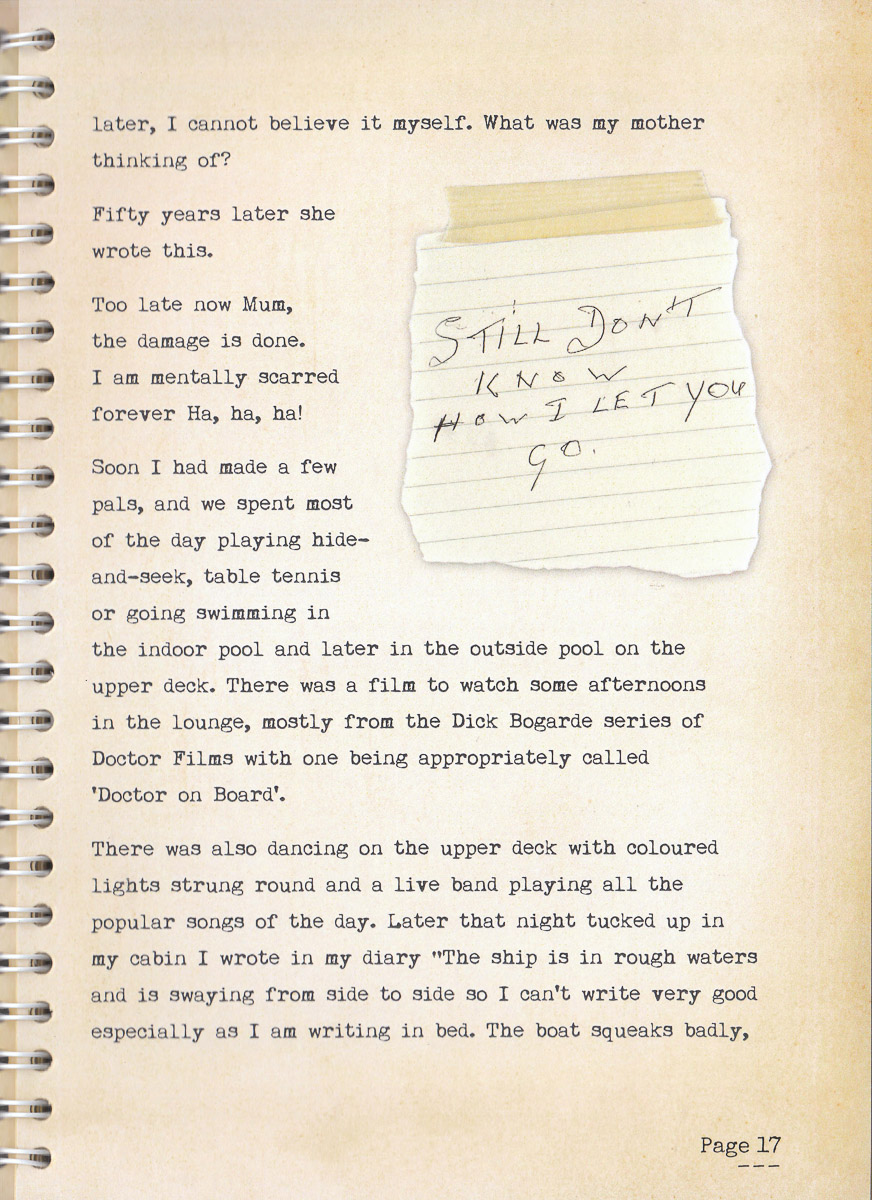 later, I cannot believe it myself. What was my mother
thinking of?
Fifty years later she
wrote this.
Too late now Mum,
the damage is done.
I am mentally scarred
forever Ha, ha, ha!
STILL DON'T
KNOW
HOW I LET YOU
GO.
Soon I had made a few
pals, and we spent most
of the day playing hide-
and-seek, table tennis
or going swimming in
the indoor pool and later in the outside pool on the
upper deck. There was a film to watch some afternoons
in the lounge, mostly from the Dick Bogarde series of
Doctor Films with one being appropriately called
'Doctor on Board'.
There was also dancing on the upper deck with coloured
lights strung round and a live band playing all the
popular songs of the day. Later that night tucked up in
my cabin I wrote in my diary "The ship is in rough waters
and is swaying from side to side so I can't write very good
especially as I am writing in bed. The boat squeaks badly,
Page 17